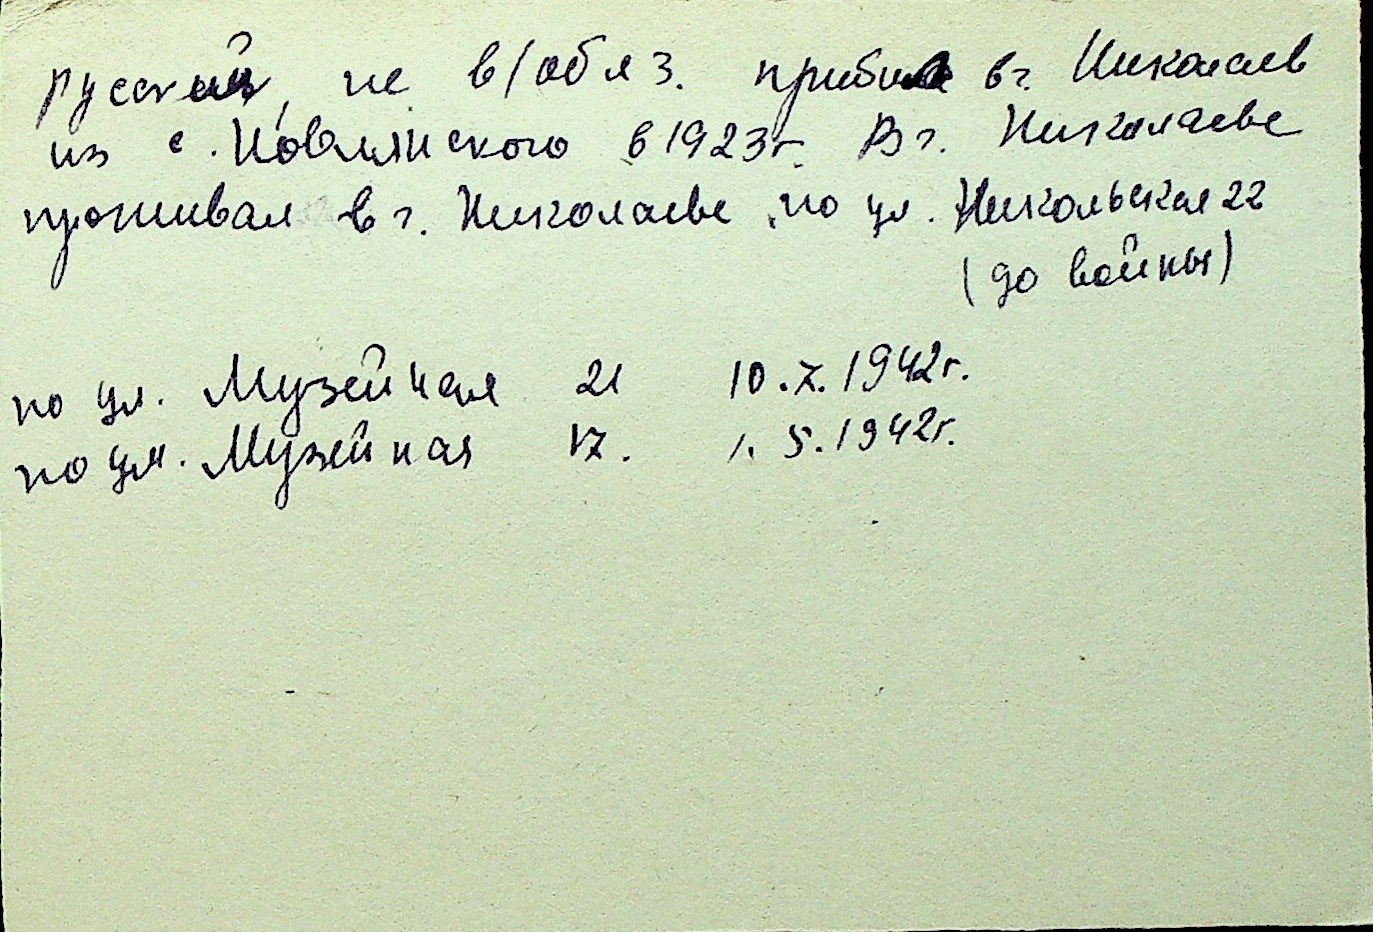 русский, не в/обяз. прибыл в г. Николаев
из с. в 1923г. В г. Николаеве
проживал в г. Николаеве, по ул. Никольская 22
(до войны)
по ул. Музейная 21 10.7.1942г.
по ул. Музейная 17. 1.5.1942г.